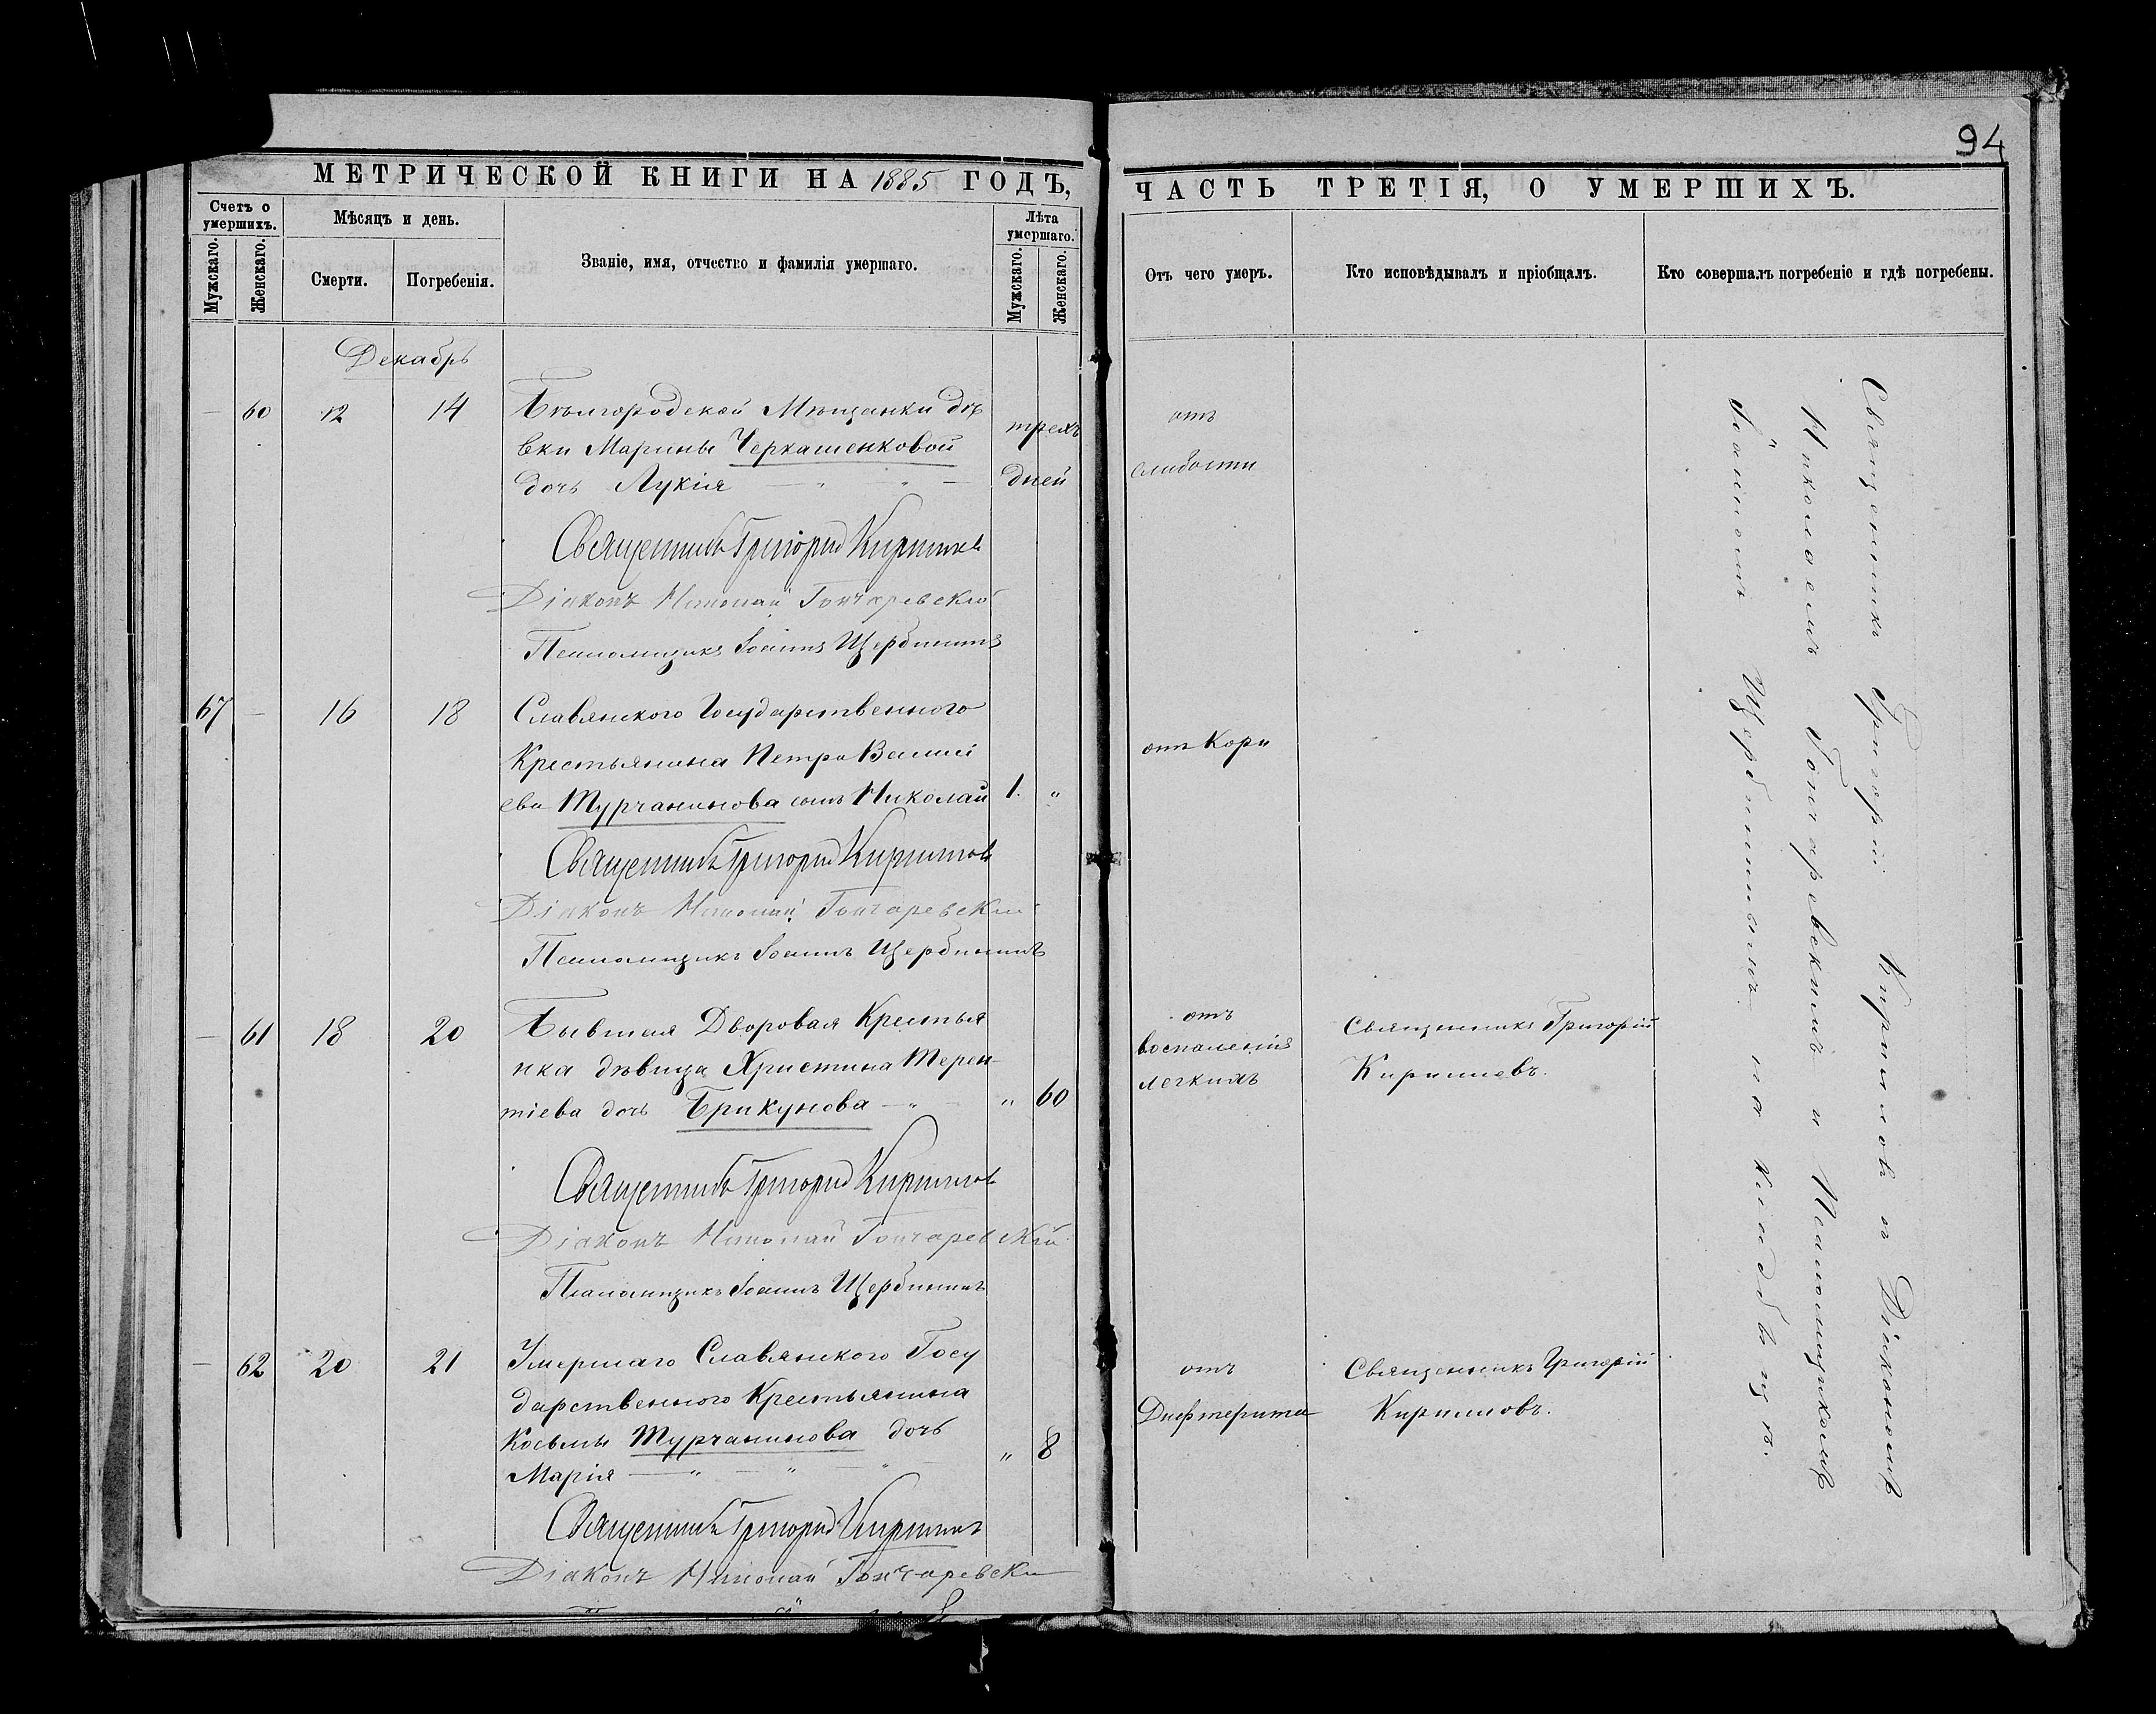 94
МЕТРИЧЕСКОЙ КНИГИ НА 1885 ГОДЪ,
ЧАСТЬ ТРЕТІЯ, О УМЕРШИХЪ.
Счетъ о умершихъ.
Мужскаго.
Женскаго.
Мѣсяцъ и день.
Смерти.
Погребенія.
Званіе, имя, отчество и фамилія умершаго.
Лѣта умершаго.
Мужскаго.
Женскаго.
Отъ чего умеръ.
Кто исповѣдывалъ и пріобщалъ.
Кто совершалъ погребеніе и гдѣ погребены.
Декабрь
— 60 12 14 Бѣлгородской Мѣщанки дѣ
вки Марины Черкашенковой
дочь Лукія — " " —
трехъ
дней
отъ
слабости
Священникъ Григорій Кирилловъ
Діаконъ Николай Гончаревскій
Псаломщикъ Іоаннъ Щербининъ
67 — 16 18 Славянского Государственного
Крестьянина Петра Васильі
ева Турчанинова сынъ Николай 1. "
отъ Кори
Священникъ Григорій Кирилловъ
Діаконъ Николай Гончаревскій
Псаломщикъ Іоаннъ Щербининъ
— 61 18 20 Бывшая Дворовая Крестья
нка дѣвица Христина Терен-
тіева дочь Брикунова — " " 60
отъ
воспаленія
легкихъ
Священникъ Григорій
Кирилловъ.
Священникъ Григорій Кирилловъ
Діаконъ Николай Гончаревскій
Псаломщикъ Іоаннъ Щербининъ
— 62 20 21 Умершаго Славянского Госу
дарственного Крестьянина
Косьмы Турчанинова дочь
Марія — " — " — " " 8
отъ
Дифтерита
Священникъ Григорій
Кирилловъ.
Священникъ Григорій Кирилловъ
Діаконъ Николай Гончаревскій
Священникъ Григорій Кирилловъ и Діакономъ
Николаемъ Гончаревскимъ и Псаломщикомъ
Іоанномъ Щербининымъ на кладбищѣ.